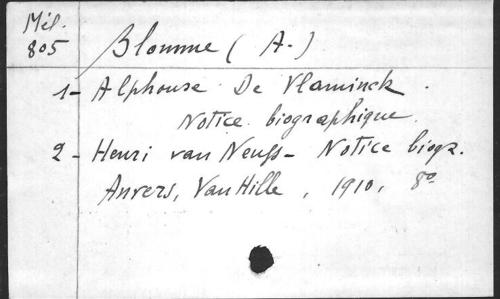 Mél.
805
Blomme (A.)
1- Alphonse De Vlaminck.
Notice biographique.
2- Henri van Neuss - Notice biogr.
Anvers, Van Hille, 1910, 8°